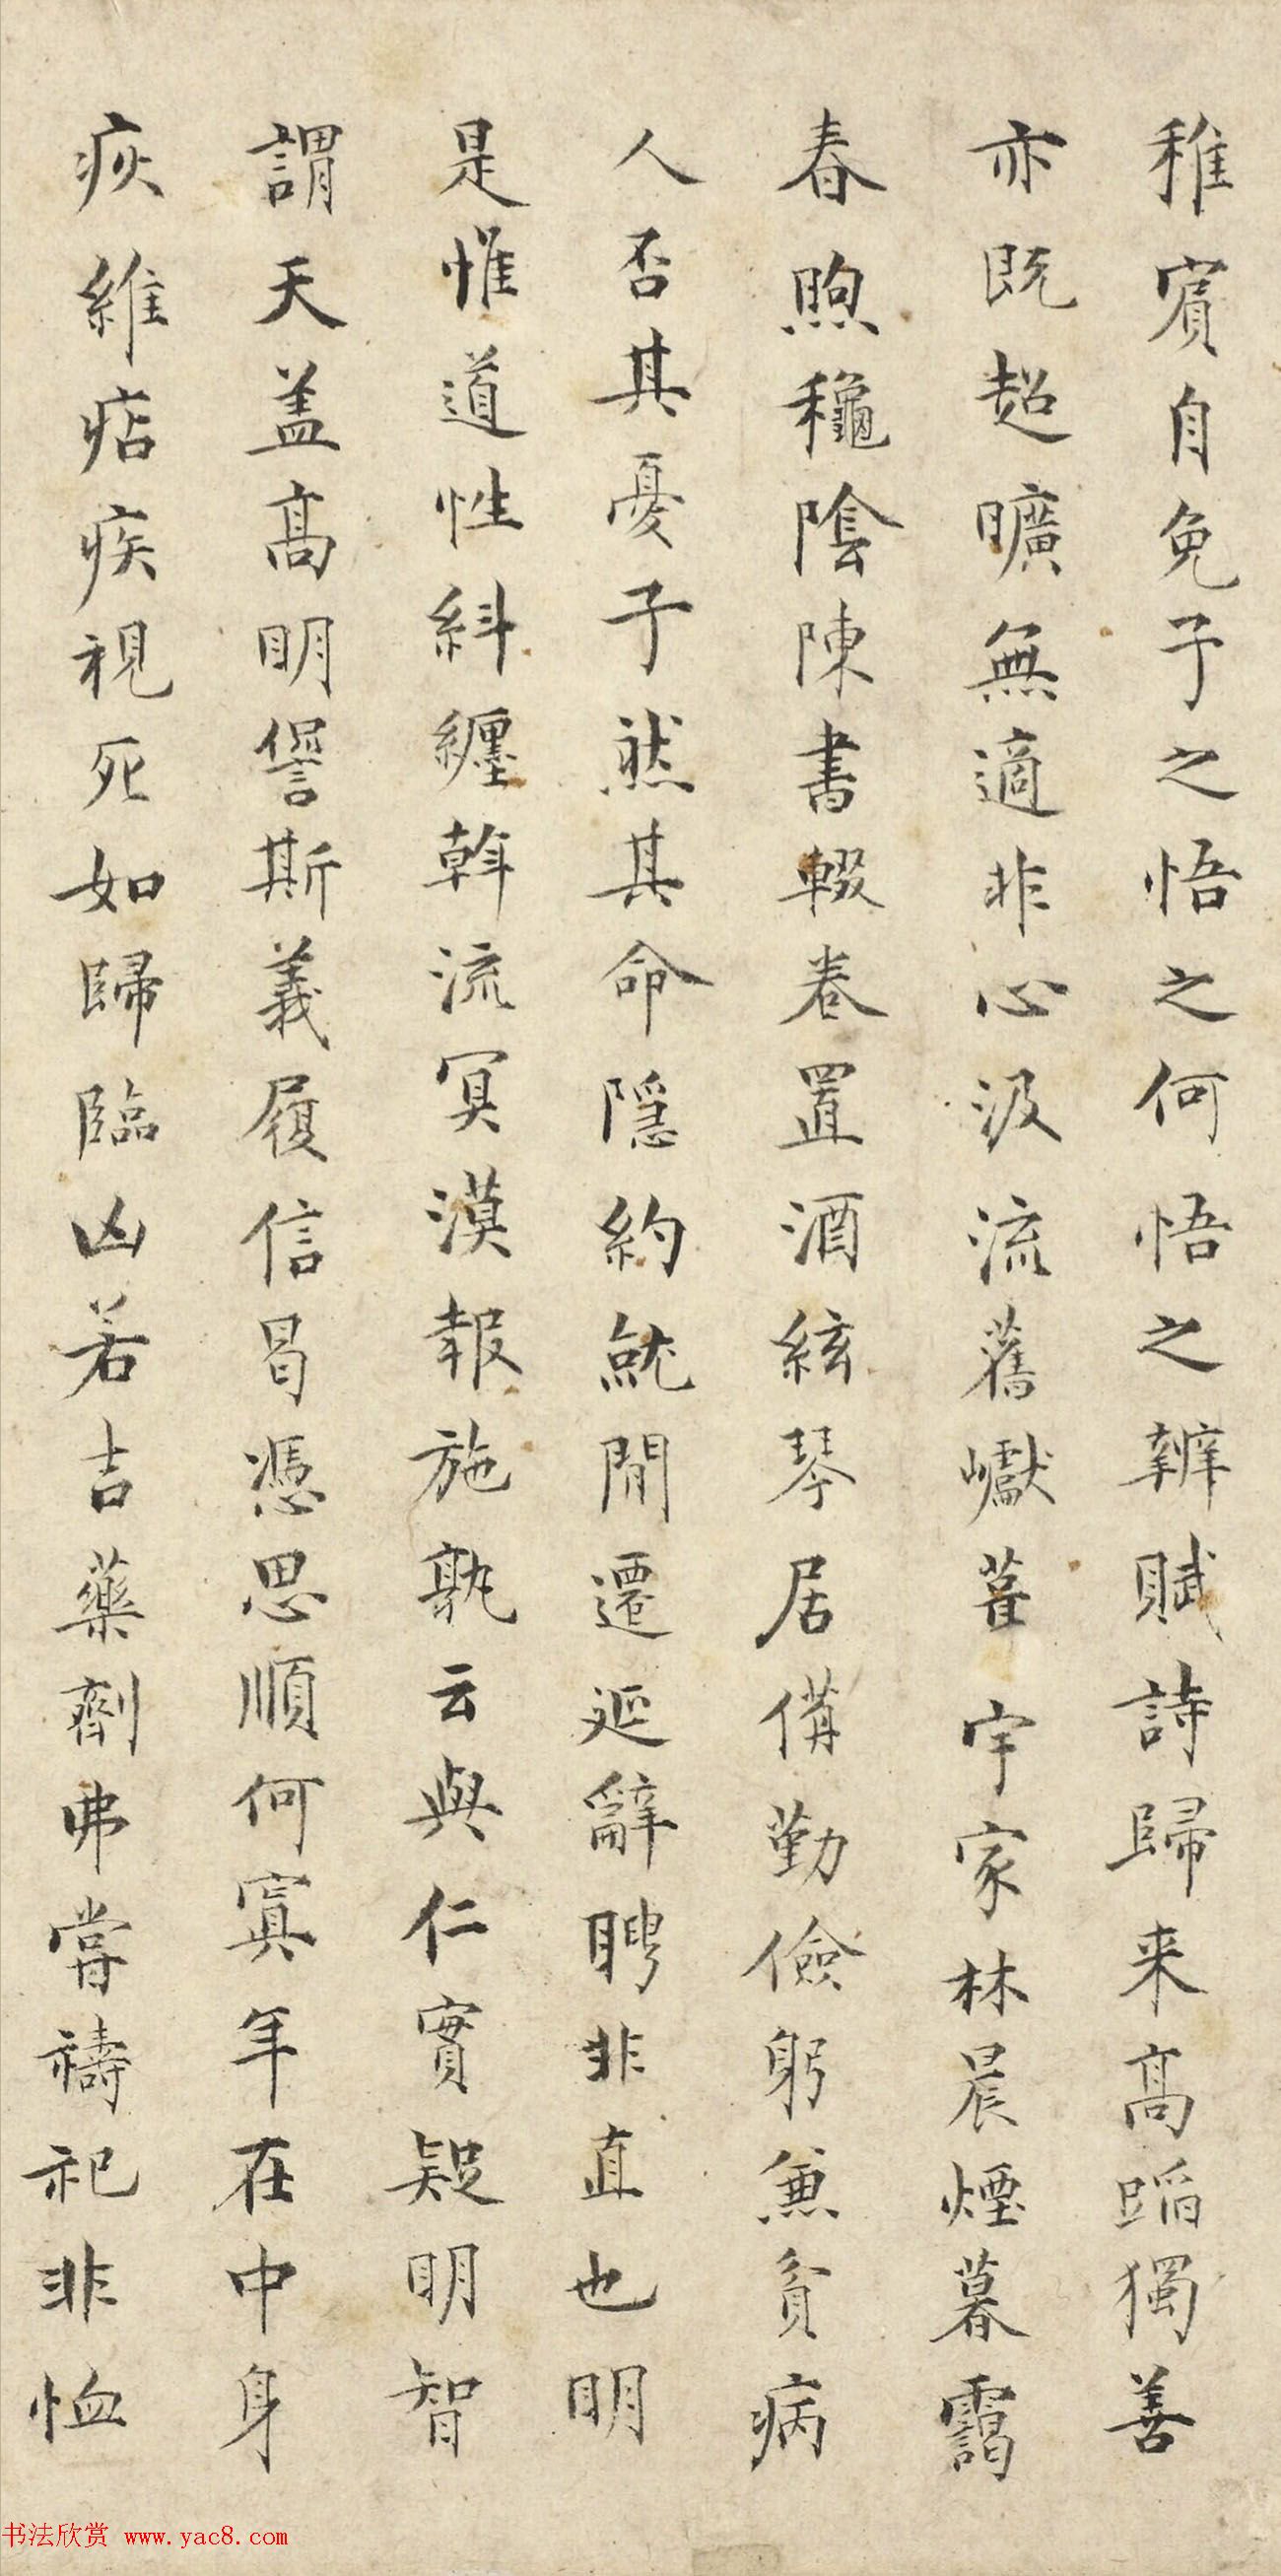 稚賓自免子之悟之何悟之辨賦詩歸来高蹈獨善
亦既超曠無適非心汲流舊巘葺宇家林晨煙暮靄
春煦龝陰陳書輟卷置酒絃琴居備勤儉躬兼貧病
人否其憂子然其命隱約就閒遷延辭聘非直也明
是惟道性糾纏斡流冥漠報施孰云與仁實疑明智
謂天盖高胡諐斯義履信曷憑思順何寘年在中身
疢維痁疾視死如歸臨凶若吉藥劑弗嘗禱祀非恤
书法欣赏 www.yac8.com